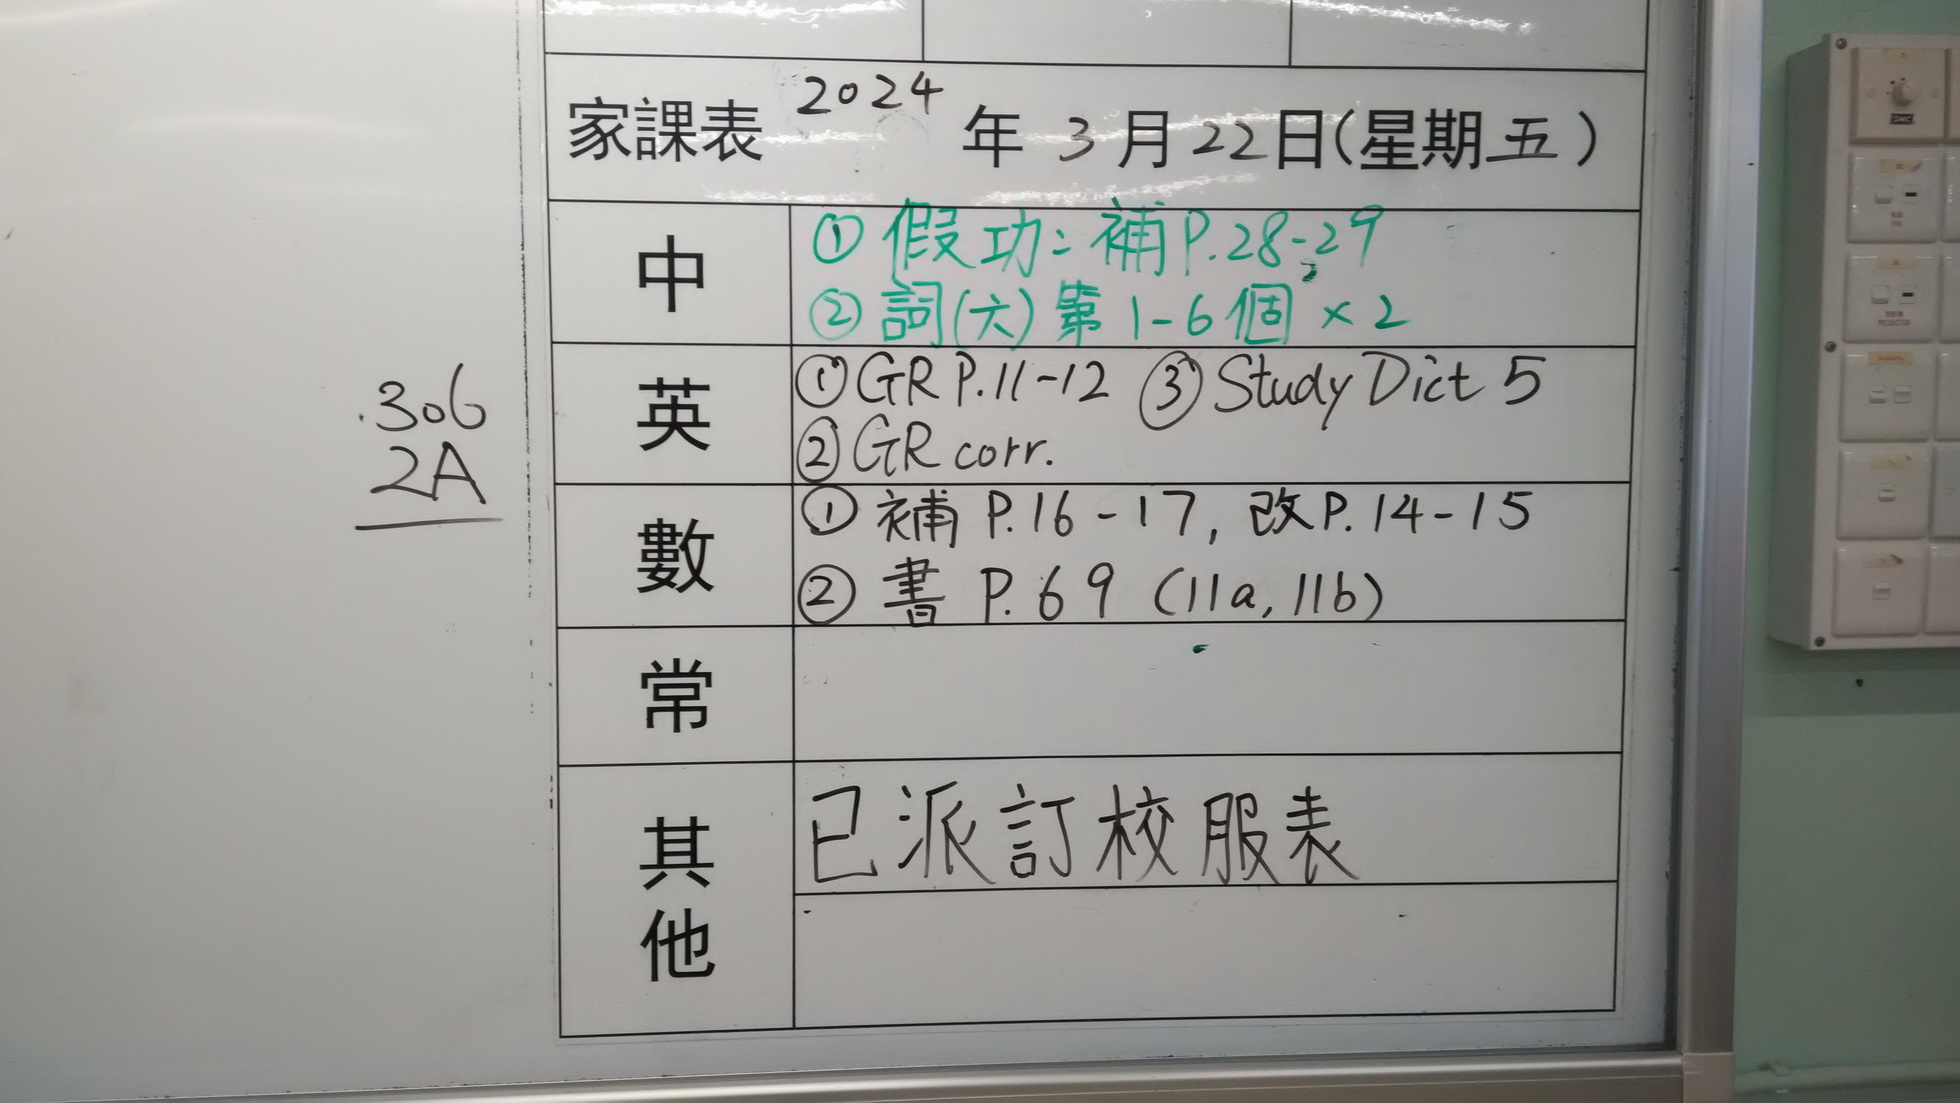 家課表 2024 年 3 月 22 日(星期五)
中
① 假功: 補 P.28-29
② 詞(六) 第 1-6個 x2
英
① GR P.11-12 ③ Study Dict 5
② GR corr.
306
2A
數
① 補 P.16-17, 改P.14-15
② 書 P.69 (11a, 11b)
常
其他
已派訂校服表